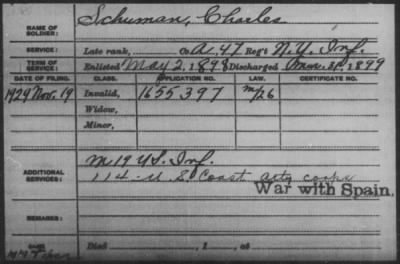 NAME OF SOLDIER: Schuman, Charles
SERVICE: Late rank, Co. A, 47 Reg't N.Y. Inf.
TERM OF SERVICE: Enlisted May 2, 1898 Discharged Mar. 31, 1899
DATE OF FILING. CLASS. APPLICATION NO. LAW. CERTIFICATE NO.
1929 Nov. 19 Invalid, 1655397
Widow,
Minor,
ADDITIONAL SERVICES: M 19 US. Inf.
114 - U.S. Coast Arty Corps
War with Spain.
REMARKS:
Died , 1 , at